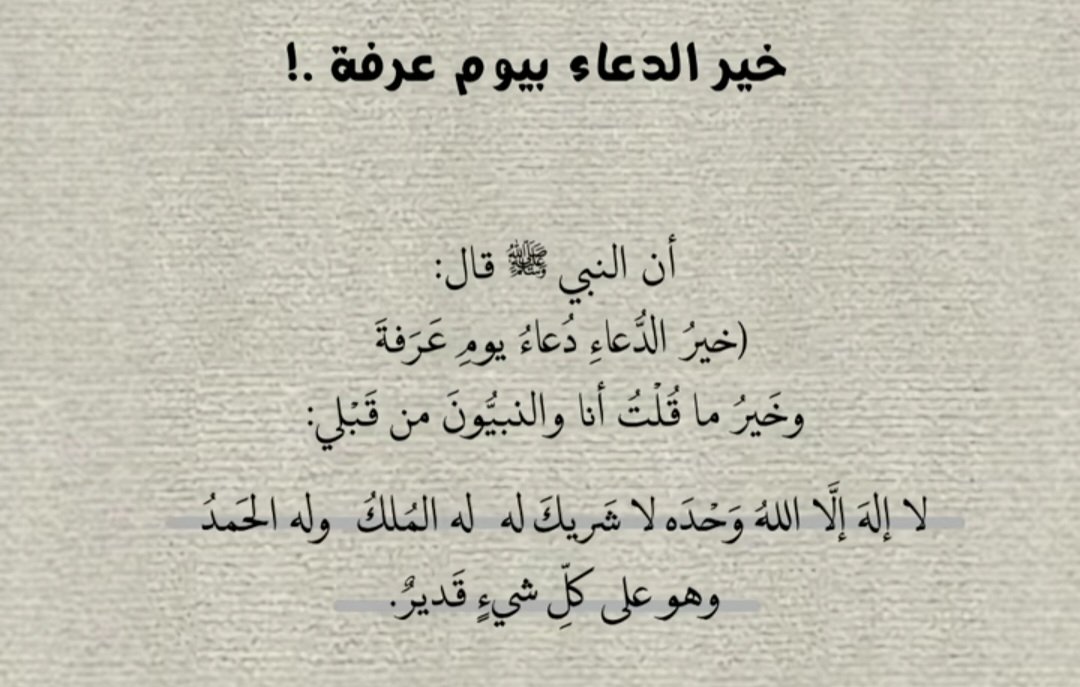 خير الدعاء بيوم عرفة .!
أن النبي ﷺ قال:
(خيرُ الدُّعاءِ دُعاءُ يومِ عَرَفةَ
وخَيرُ ما قُلْتُ أنا والنبيُّونَ من قَبْلي:
لا إلهَ إلَّا اللهُ وَحْدَه لا شَريكَ له له المُلكُ وله الحَمدُ
وهو على كلِّ شيءٍ قَديرٌ.